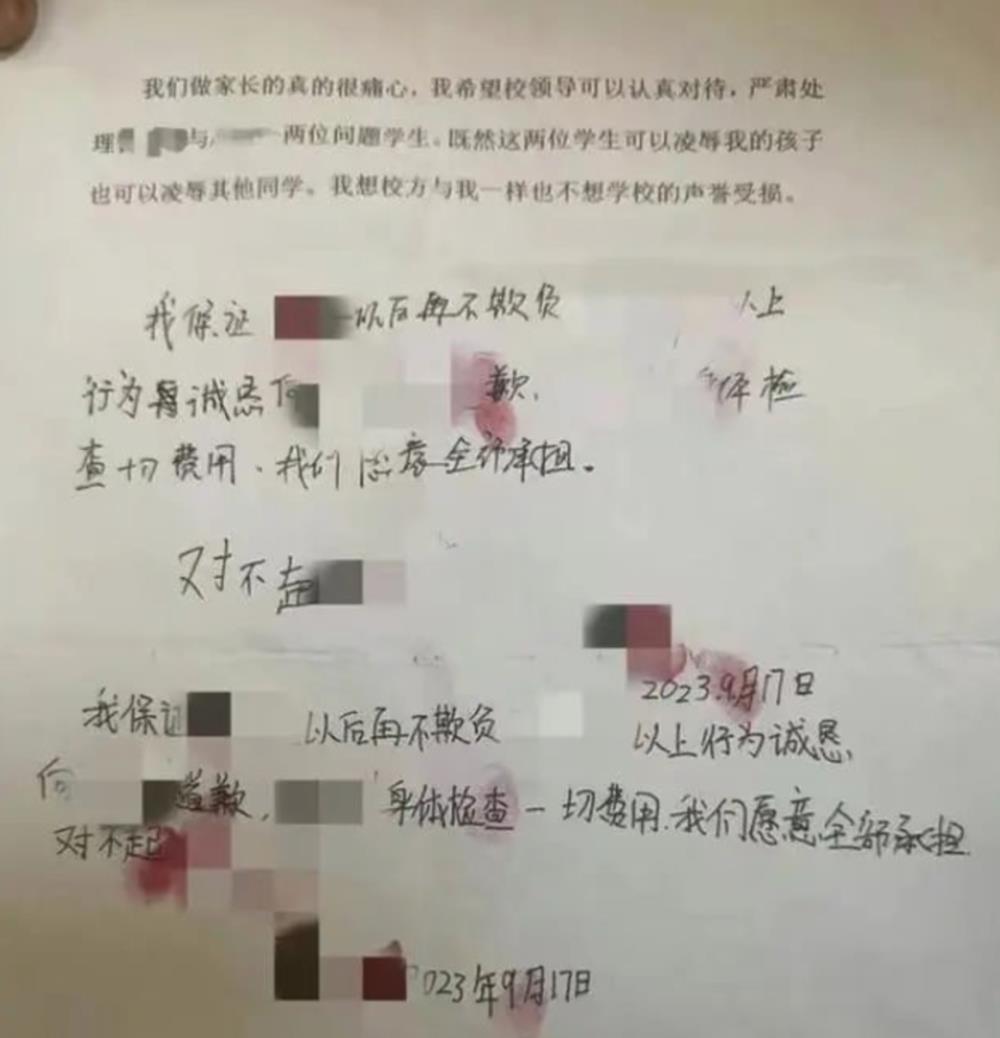 我们做家长的真的很痛心，我希望校领导可以认真对待，严肃处
理 与 两位问题学生。既然这两位学生可以凌辱我的孩子
也可以凌辱其他同学。我想校方与我一样也不想学校的声誉受损。
我保证 以后再不欺负 以上
行为 诚恳向 歉, 体检
查一切费用、我们愿意全部承担。
对不起
2023.9月17日
我保证 以后再不欺负 以上行为诚恳,
向 道歉, 身体检查一切费用.我们愿意全部承担
对不起
2023年9月17日